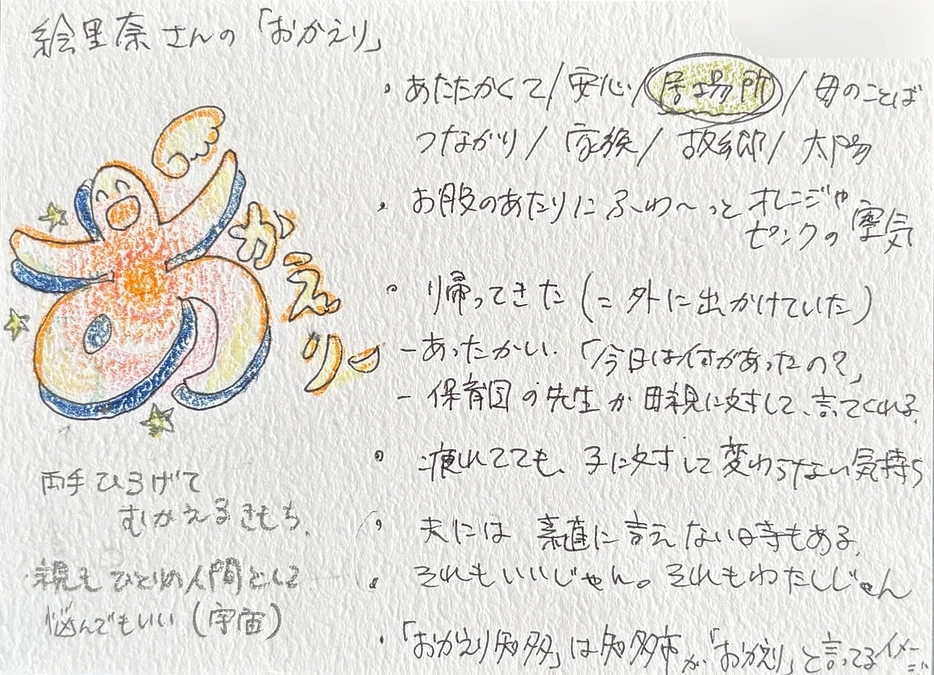 絵里奈さんの「おかえり」
・あたたかくて/安心/居場所/母のことば
つながり/家族/故郷/太陽
・お腹のあたりにふわ〜っとオレンジや
ピンクの空気
・帰ってきた(=外に出かけていた)
-あったかい.「今日は何があったの?」
-保育園の先生が母親に対して、言ってくれる
・疲れてても、子に対して変わらない気持ち
・夫には素直に言えない時もある。
・それもいいじゃん。それもわたしじゃん
・「おかえり知多」は知多市が「おかえり」と言ってるイメージ
おかえりー
両手ひろげて
むかえるきもち
・親もひとりの人間として
悩んでもいい(宇宙)